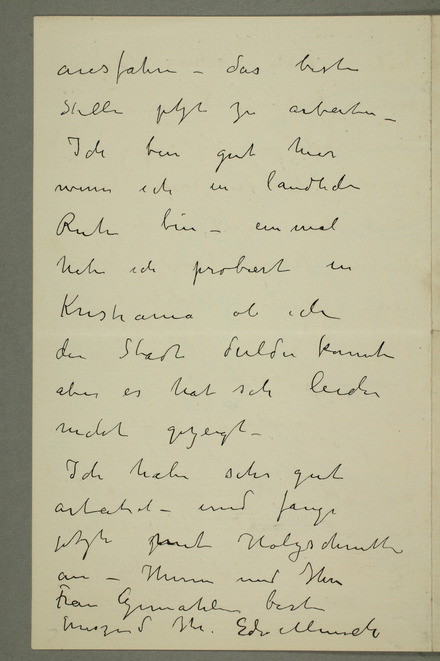 ausfahren – das beste
Stelle jetzt zu arbeiten –
Ich bin gut hier
wenn ich in landlicher
Ruhe bin – einmal
habe ich probiert in
Kristiania ob ich
die Stadt dulden konnte
aber es hat sich leider
nicht gezeigt –
Ich habe sehr gut
arbeitet – und fange
jetzt mit Holzschnitte
an – Ihnen und Ihre
Frau Gemahlin beste
Ihr. Edv Munch